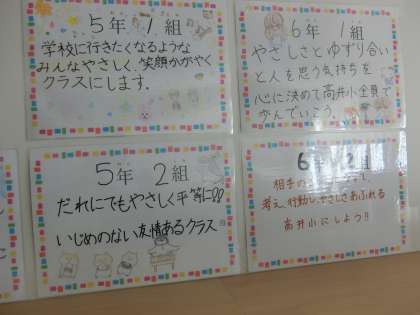 5年 1組
学校に行きたくなるような
みんなやさしく、笑顔かがやく
クラスにします。
6年 1組
やさしさとゆずり合い
と人を思う気持ちを
心に決めて高井小全員で
歩んでいこう。
5年 2組
だれにでもやさしく平等に
いじめのない友情あるクラス
6年 2組
相手の
考え、行動し、やさしさあふれる
高井小にしよう!!